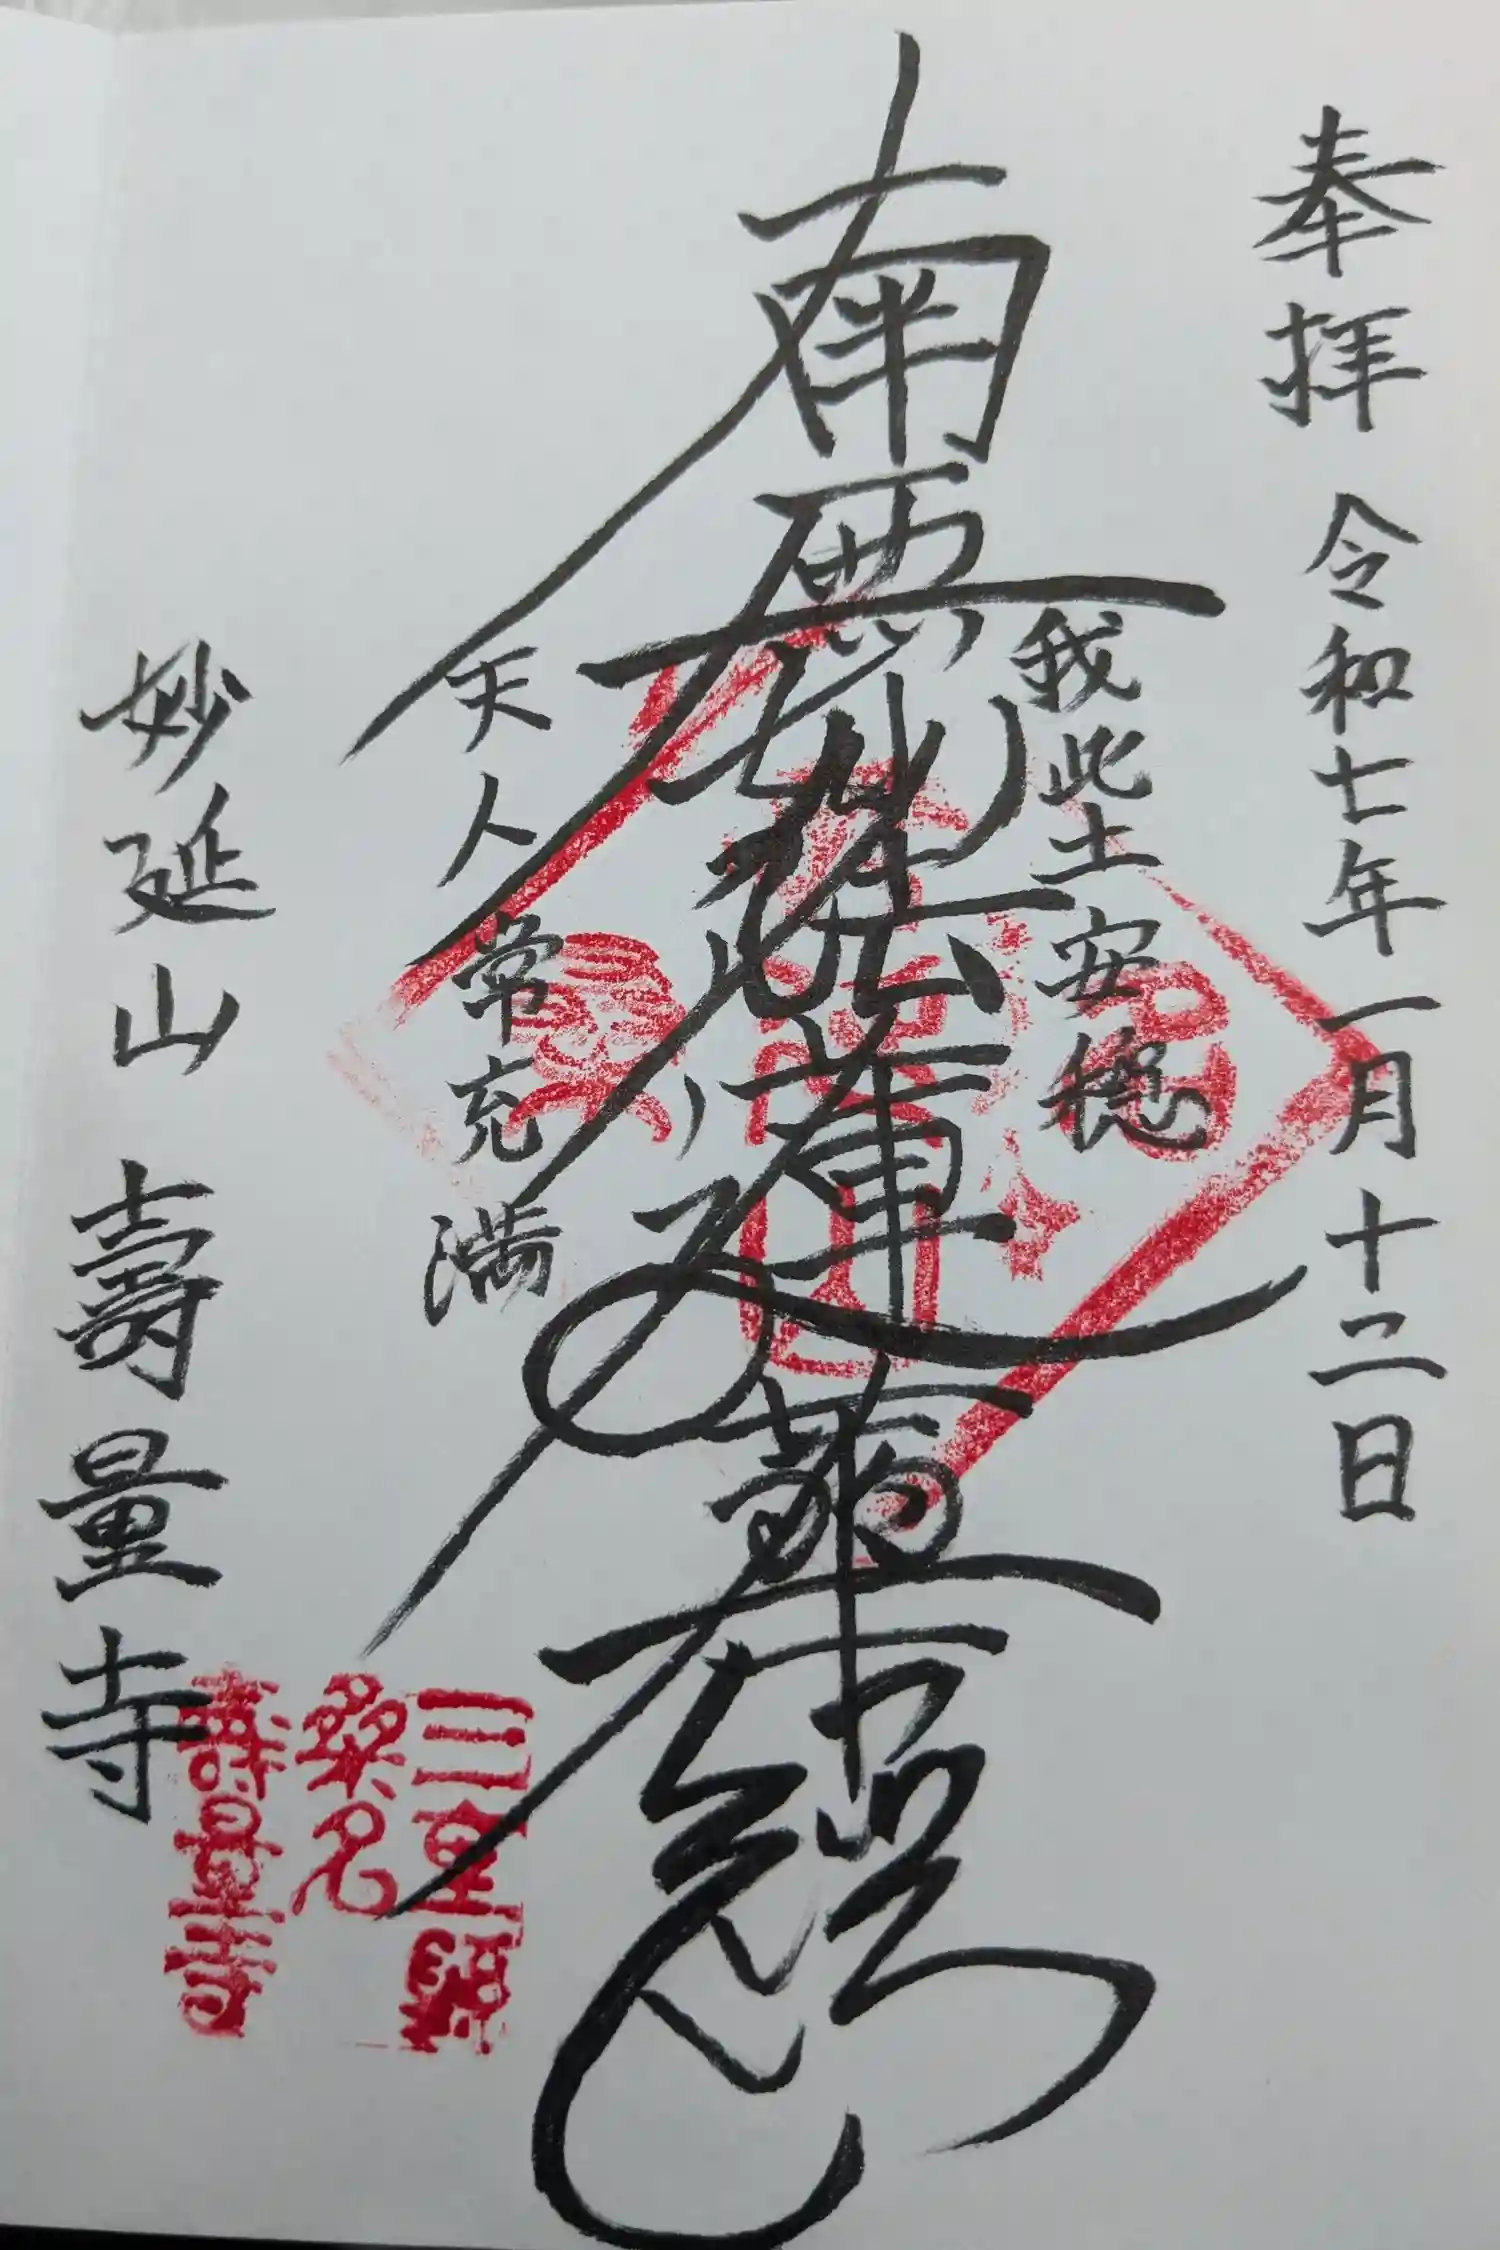 奉拝 令和七年一月十二日
我此土安穏
南無妙法蓮華経
天人常充満
妙延山 壽量寺
三重県
桑名
壽量寺